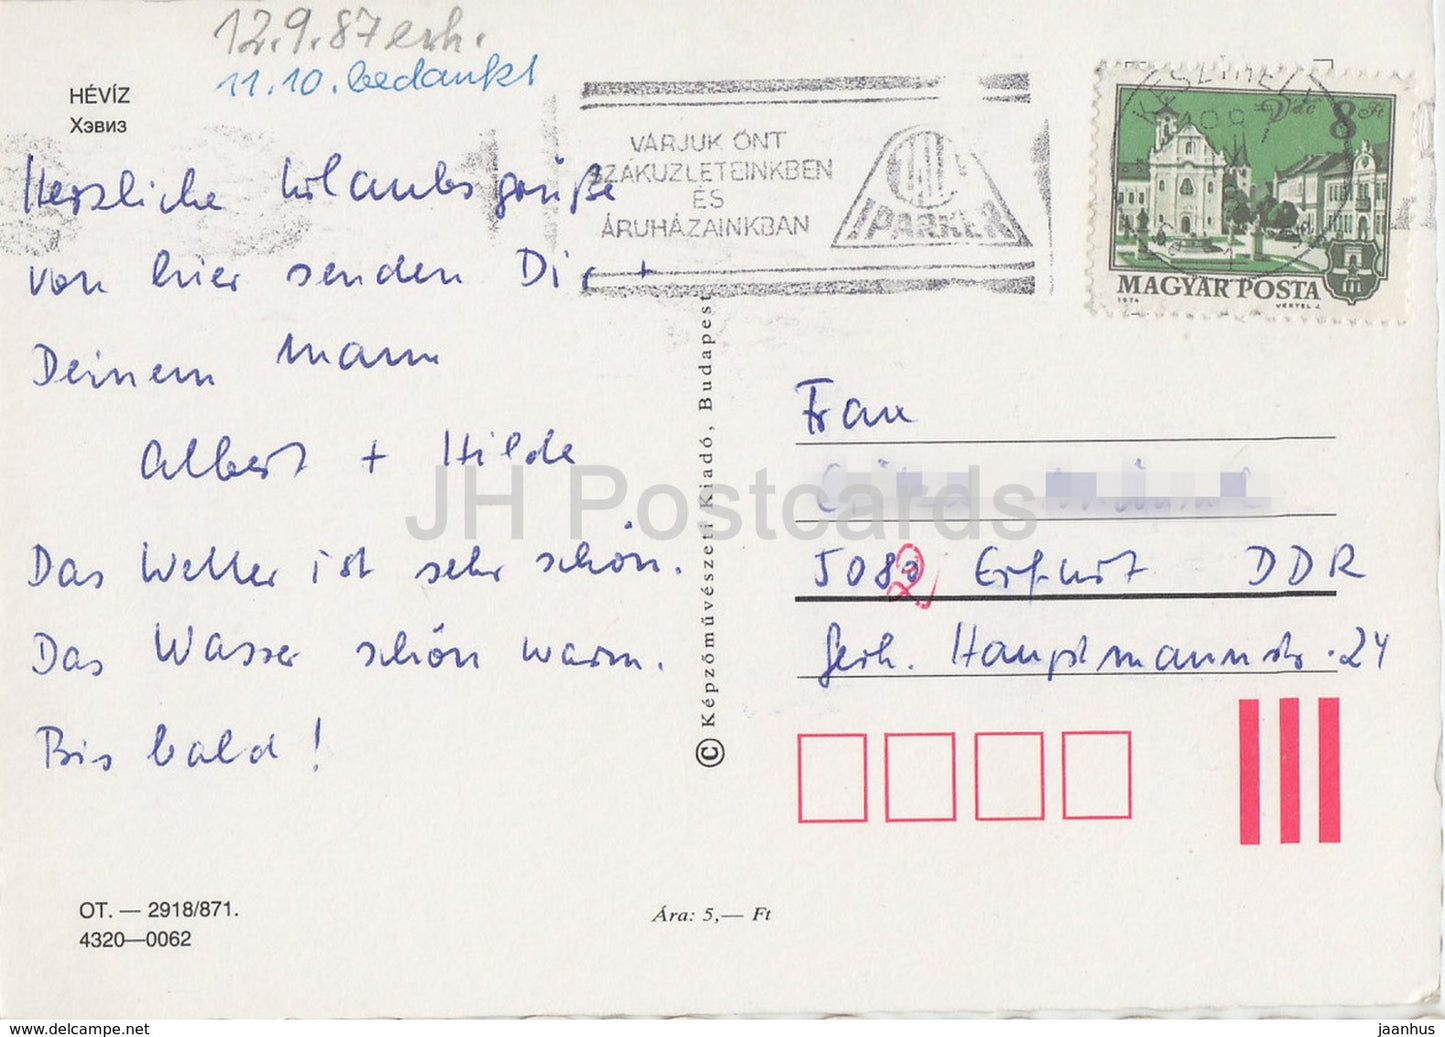 12.9.87 erh.
11.10. bedankt
HÉVÍZ
Хэвиз
Herzliche Urlaubsgrüße
von hier senden Dir +
Deinem Mann
Albert + Hilde
Das Wetter ist sehr schön.
Das Wasser schön warm.
Bis bald!
VÁRJUK ÖNT
SZAKÜZLETEINKBEN
ÉS
ÁRUHÁZAINKBAN
PARKER
Vác 8 Ft
MAGYAR POSTA
1974 VERTEL J.
Frau
5082 Erfurt DDR
Gerh. Hauptmannstr. 24
© Képzőművészeti Kiadó, Budapest
JH Postcards
OT. — 2918/871.
4320—0062
Ára: 5,— Ft
http://www.delcampe.net
jaanhus